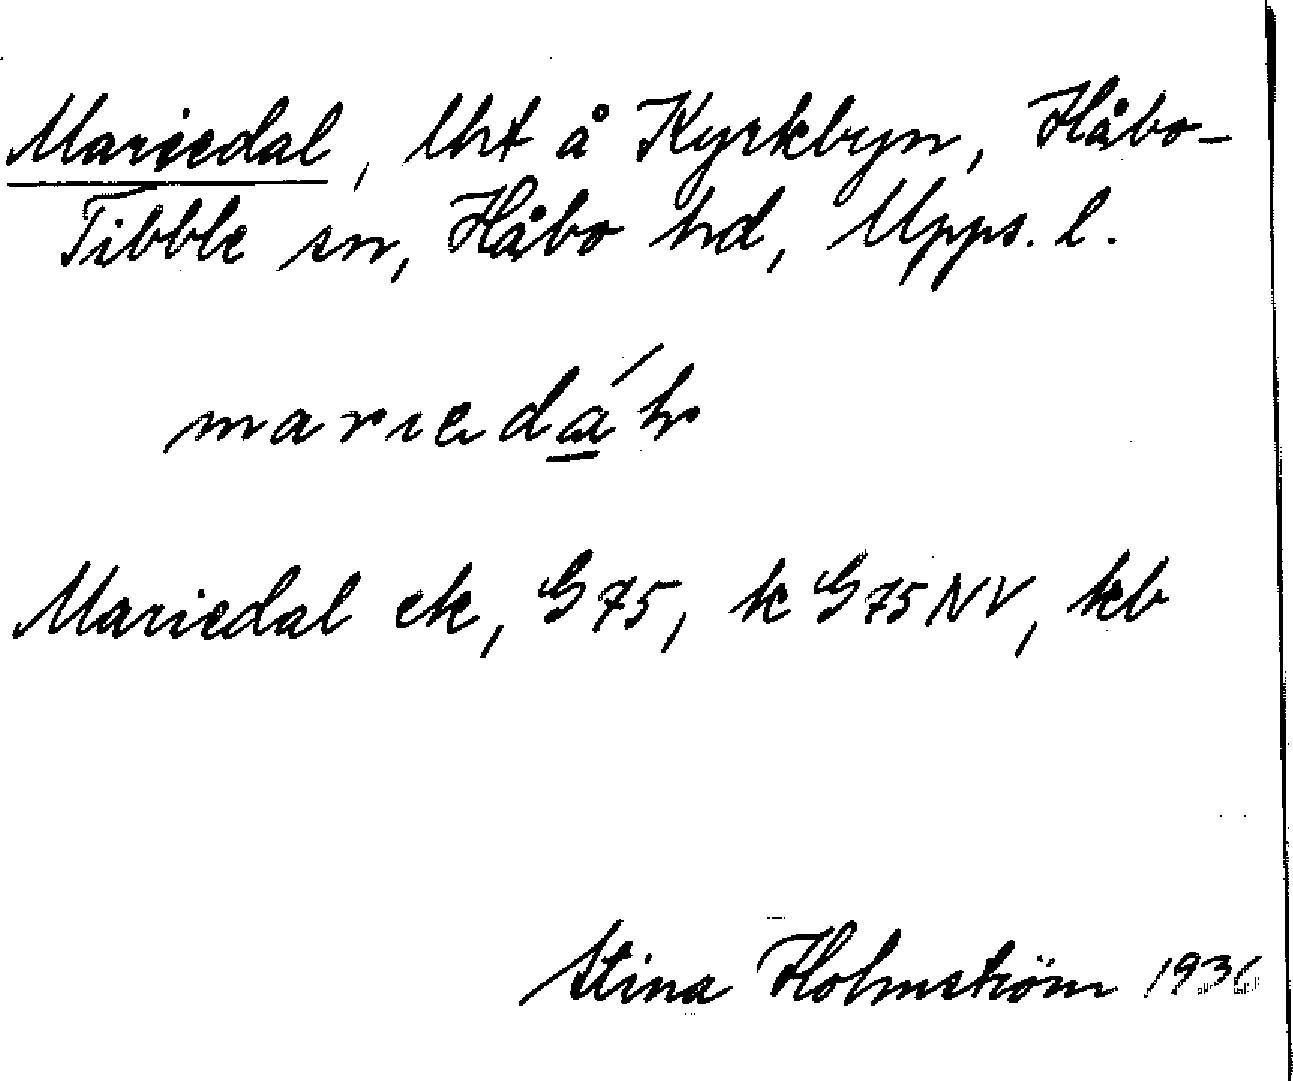 Mariedal, lht å Kyrkbyn, Håbo-
Tibble sn, Håbo hd, Upps. l.
Mariedal ek, G 75, k G 75 NV, kb
Stina Holmström 1936